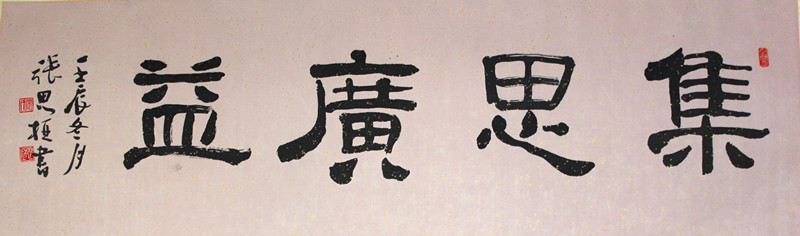 集思廣益
壬辰冬月
張思 書